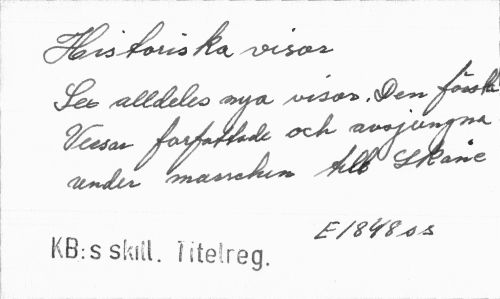 Historiska visor
Sex alldeles nya visor. Den första
Visor författade och avsjungna
under marschen till Skåne
E1848os
KB:s skill. Titelreg.